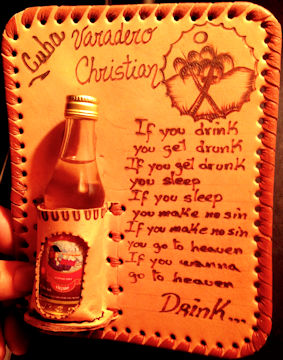 Cuba Varadero
Christian
If you drink
you get drunk
If you get drunk
you sleep
If you sleep
you make no sin
If you make no sin
you go to heaven
If you wanna
go to heaven
Drink...